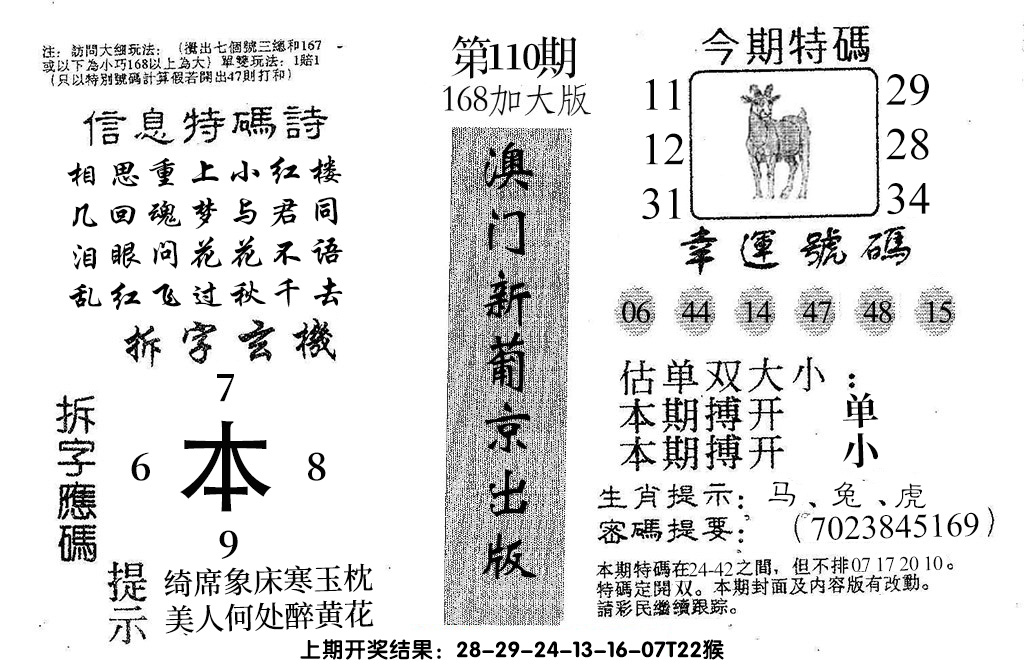 注：訪問大細玩法：（攪出七個號三總和167
或以下為小巧168以上為大）單雙玩法：1賠1
（只以特別號碼計算假若開出47則打和）
信息特碼詩
相思重上小红楼
几回魂梦与君同
泪眼问花花不语
乱红飞过秋千去
拆字玄機
拆字應碼
7
6 本 8
9
提示
绮席象床寒玉枕
美人何处醉黄花
第110期
168加大版
澳门新葡京出版
今期特碼
11 29
12 28
31 34
幸運號碼
06 44 14 47 48 15
估单双大小：
本期搏开 单
本期搏开 小
生肖提示：马、兔、虎
密碼提要：（7023845169）
本期特碼在24-42之間，但不排07 17 20 10。
特碼定開双。本期封面及内容版有改動。
請彩民繼續跟踪。
上期开奖结果：28-29-24-13-16-07T22猴